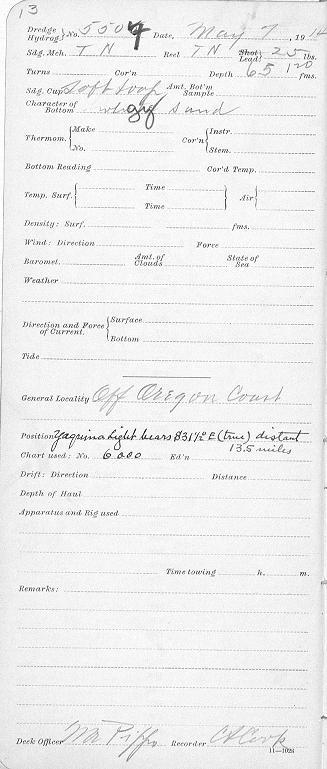 13
Dredge Hydrog. } No. 5504 Date, May 7, 1914
Sdg. Mch. TN Reel TN Shot Lead } 25 lbs.
Turns Cor'n Depth 65 120 fms.
Sdg. Cup Amt. Bot'm Sample
Character of Bottom gy sand
Thermom. { Make No. Cor'n { Instr. Stem.
Bottom Reading Cor'd Temp.
Temp. Surf. { Time Time } Air {
Density: Surf. fms.
Wind: Direction Force
Baromet. Amt. of Clouds State of Sea
Weather
Direction and Force of Current. { Surface Bottom
Tide
General Locality Off Oregon Coast
Position Yaquina Light bears S31½°E (true) distant
13.5 miles
Chart used: No. 6000 Ed'n
Drift: Direction Distance
Depth of Haul
Apparatus and Rig used
Time towing h. m.
Remarks:
Deck Officer Mr Recorder
11—1028